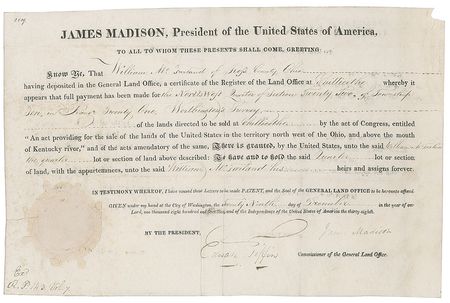 JAMES MADISON, President of the United States of America,
TO ALL TO WHOM THESE PRESENTS SHALL COME, GREETING:
Know Ye, That William McFarland of Ross County Ohio
having deposited in the General Land Office, a certificate of the Register of the Land Office at Chillicothe whereby it
appears that full payment has been made for the North West Quarter of Section Twenty five of Township
Ten, in Range Twenty One Worthington's Survey
of the lands directed to be sold at Chillicothe by the act of Congress, entitled
"An act providing for the sale of the lands of the United States in the territory north west of the Ohio, and above the mouth
of Kentucky river," and of the acts amendatory of the same. There is granted, by the United States, unto the said William McFarland
the quarter lot or section of land above described: To have and to hold the said quarter lot or section
of land, with the appurtenances, unto the said William McFarland his heirs and assigns forever.
IN TESTIMONY WHEREOF, I have caused these Letters to be made PATENT, and the Seal of the GENERAL LAND OFFICE to be hereunto affixed.
GIVEN under my hand at the City of Washington, the Twenty Ninth day of December in the year of our
Lord, one thousand eight hundred and and of the Independence of the United States of America the thirty eighth.
BY THE PRESIDENT,
James Madison
Edward Tiffin Commissioner of the General Land Office.